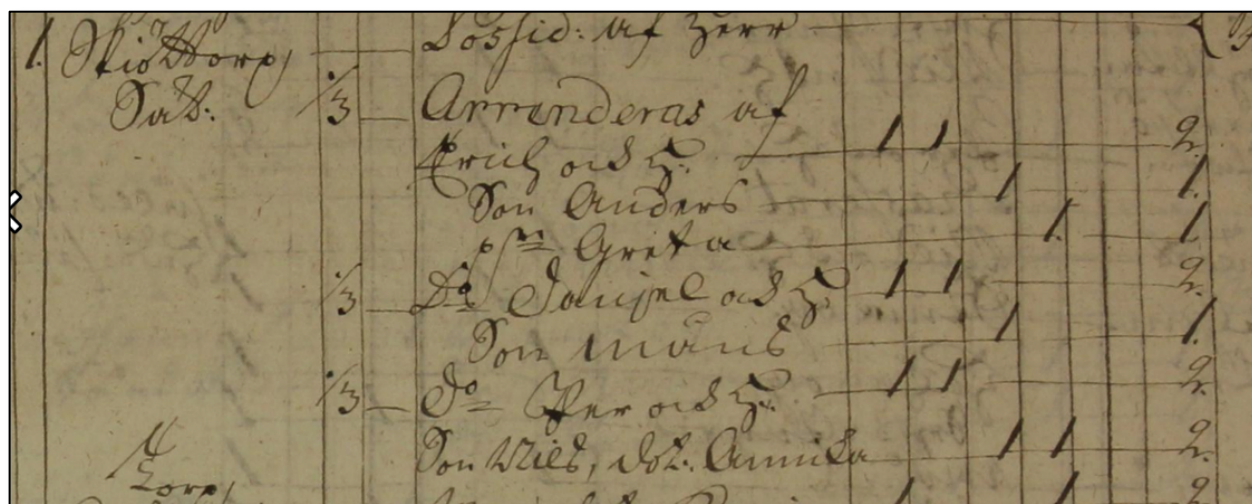 1. Skiöttorp Possid: af Herr
Sat. 1/3 Arrenderas af
Erich och H. 1 1 2.
Son Anders 1 1.
Greta 1. 1
1/3 Do Daniel och H. 1 1 2.
Son Måns 1 1.
1/3 do Per och H. 1 1 2.
Son Nils, dot. Annika 1 1 2.
Torp,